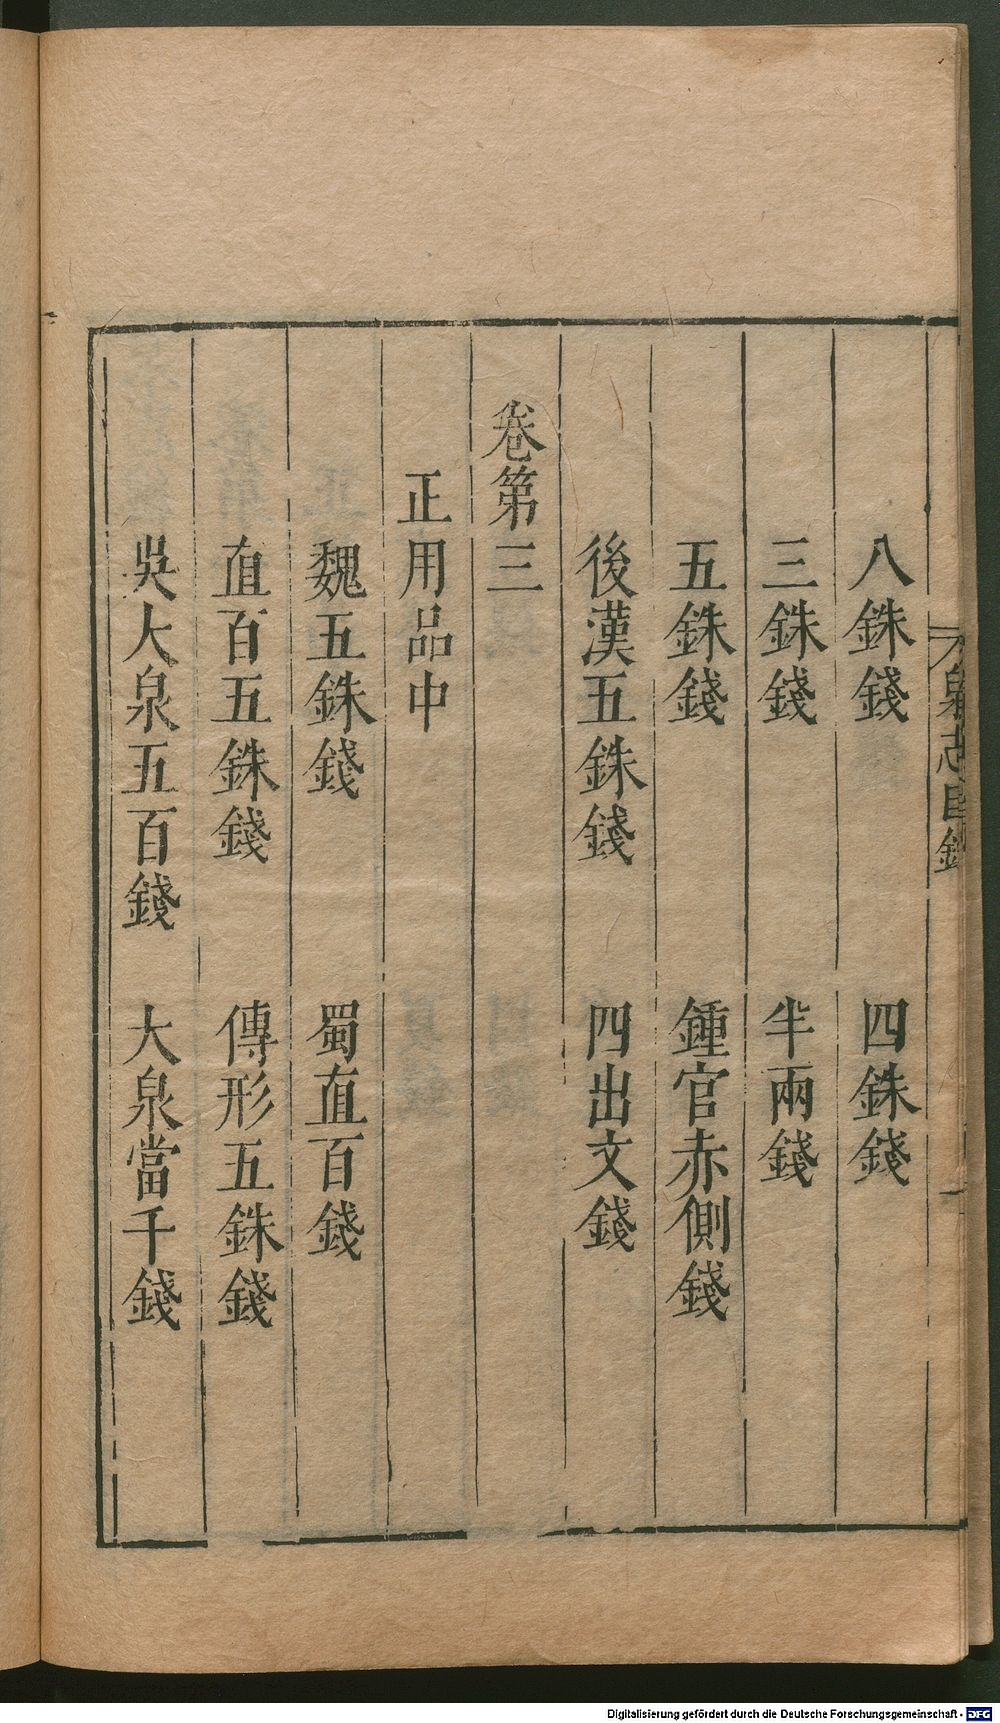 八銖錢　四銖錢
三銖錢　半兩錢
五銖錢　鍾官赤側錢
後漢五銖錢　四出文錢
卷第三
正用品中
魏五銖錢　蜀直百錢
直百五銖錢　傳形五銖錢
吳大泉五百錢　大泉當千錢
泉志目錄
一
Digitalisierung gefördert durch die Deutsche Forschungsgemeinschaft - DFG